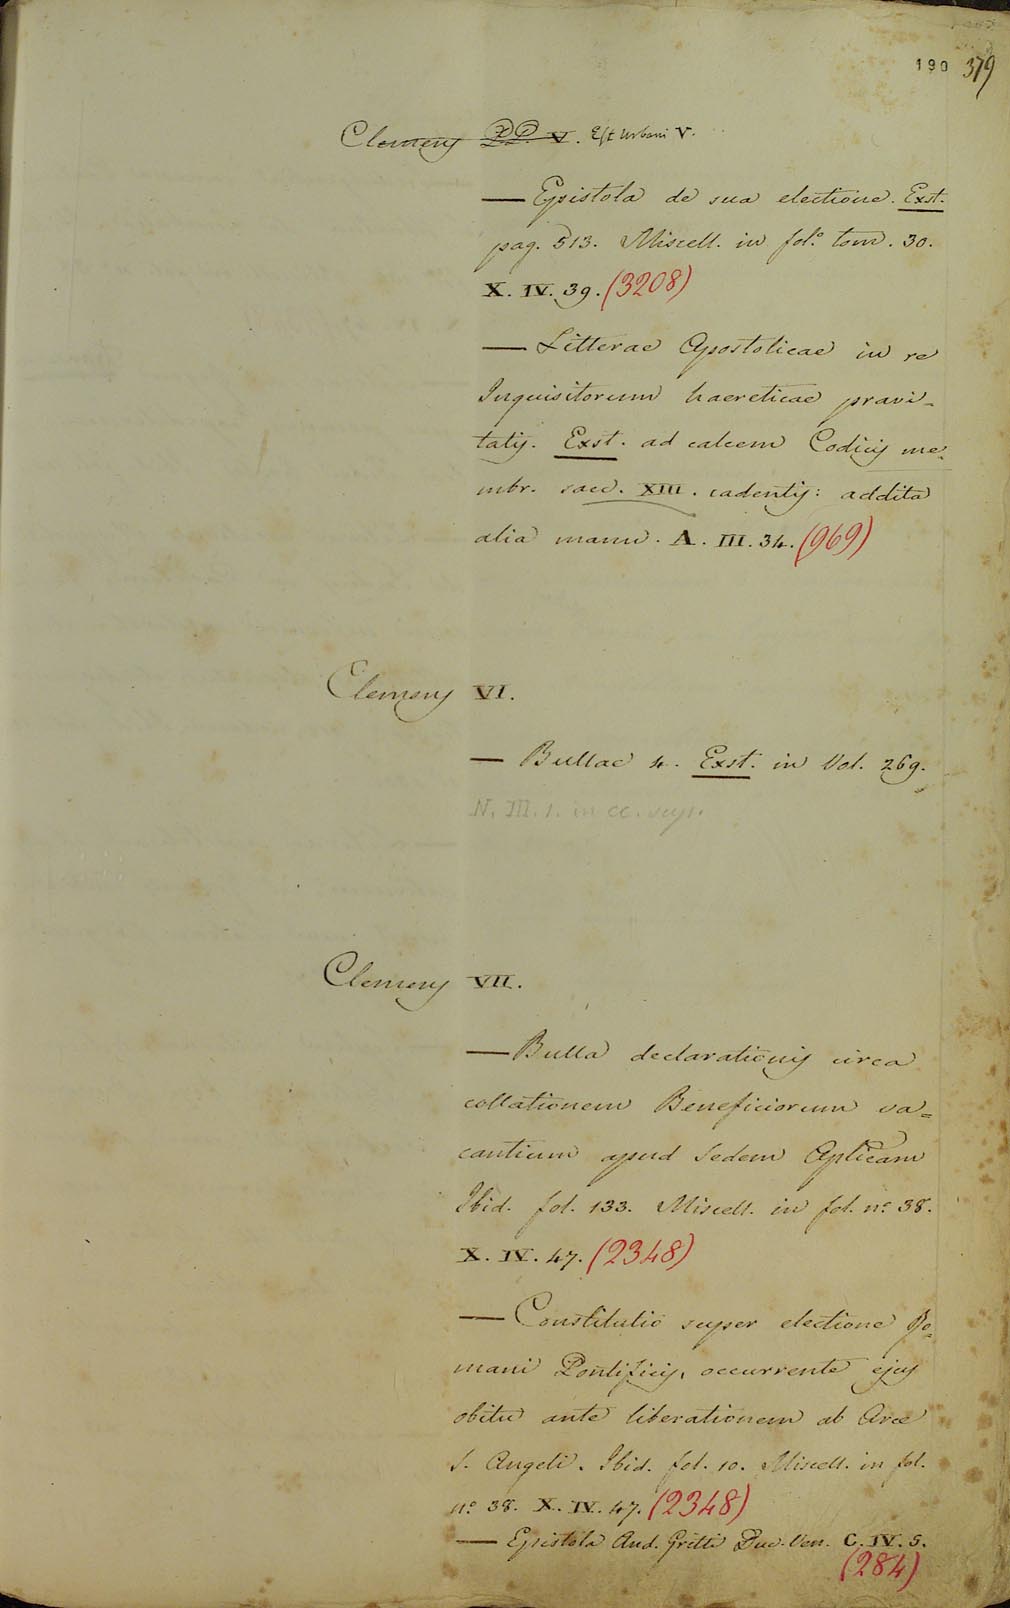 190 379
Clemens PP. V. Est Urbani V.
— Epistola de sua electione. Exst.
pag. 513. Miscell. in fol.º tom. 30.
X. IV. 39. (3208)
— Litterae Apostolicae in re
Inquisitorum haereticae pravi-
tatis. Exst. ad calcem Codicis me-
mbr. saec. XIII. cadentis: addita
alia manu. A. III. 34. (969)
Clemens VI.
— Bullae 4. Exst. in Vol. 269.
N. III. 1. in cc. susp.
Clemens VII.
— Bulla declarationis circa
collationem Beneficiorum va=
cantium apud Sedem Aplicam
Ibid. fol. 133. Miscell. in fol. nº 38.
X. IV. 47. (2348)
— Constitutio super electione Ro=
mani Pontificis, occurrente ejus
obitu ante liberationem ab Arce
S. Angeli. Ibid. fol. 10. Miscell. in fol.
nº 38. X. IV. 47. (2348)
— Epistola And. Gritti Duc. Ven. C. IV. 5.
(284)